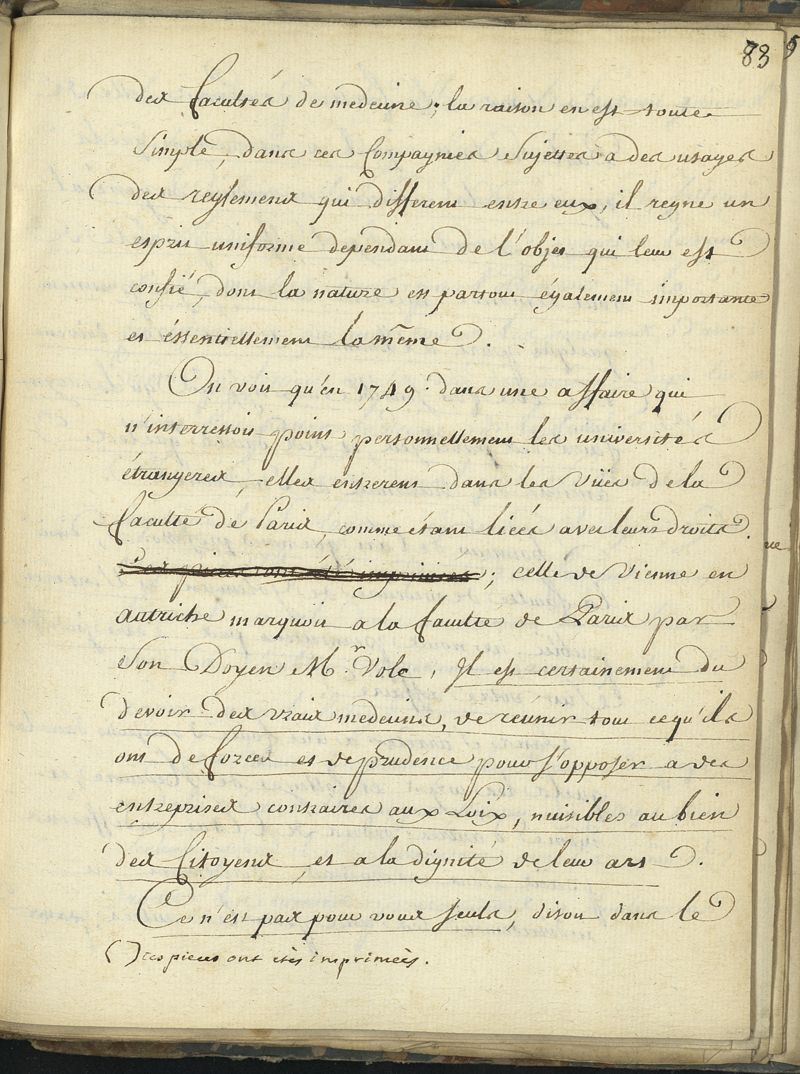 83
des facultés de medecine; la raison en est toute
simple, dans ces Compagnies sujettes a des usages
des reglemens qui different entre eux, il regne un
esprit uniforme dependant de l'objet qui leur est
confié, dont la nature est partout également importante
et éssentiellement la même.
On voit qu'en 1749. dans une affaire qui
n'interressoit point personnellement les universités
étrangeres, elles entrerent dans les vües de la
faculté de Paris, comme étant liées avec leurs droits.
Ces pieces ont été imprimées; celle de Vienne en
autriche marquoit a la faculté de Paris par
son Doyen Mr. Volc, Il est certainement du
devoir des vrais medecins, de reunir tout ce qu'ils
ont de forces et de prudence pour s'opposer a des
entreprises contraires aux Loix, nuisibles au bien
des Citoyens, et a la dignité de leur art.
Ce n'est pas pour vous seuls, disoit dans le
( ) ces pieces ont etés imprimées.